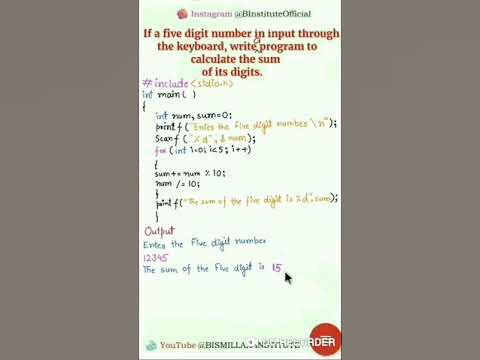 Instagram @BInstituteOfficial
If a five digit number in input through
the keyboard, write program to
calculate the sum
of its digits.
#include<stdio.h>
int main( )
{
int num, sum=0;
printf("Enter the Five digit number \n");
Scanf ("%d", & num);
for (int i=0; i<5; i++)
{
sum+= num % 10;
num /= 10;
}
printf("The sum of the five digit is %d",sum);
}
Output
Enter the Five digit number
12345
The sum of the Five digit is 15
YouTube @BISMILLA